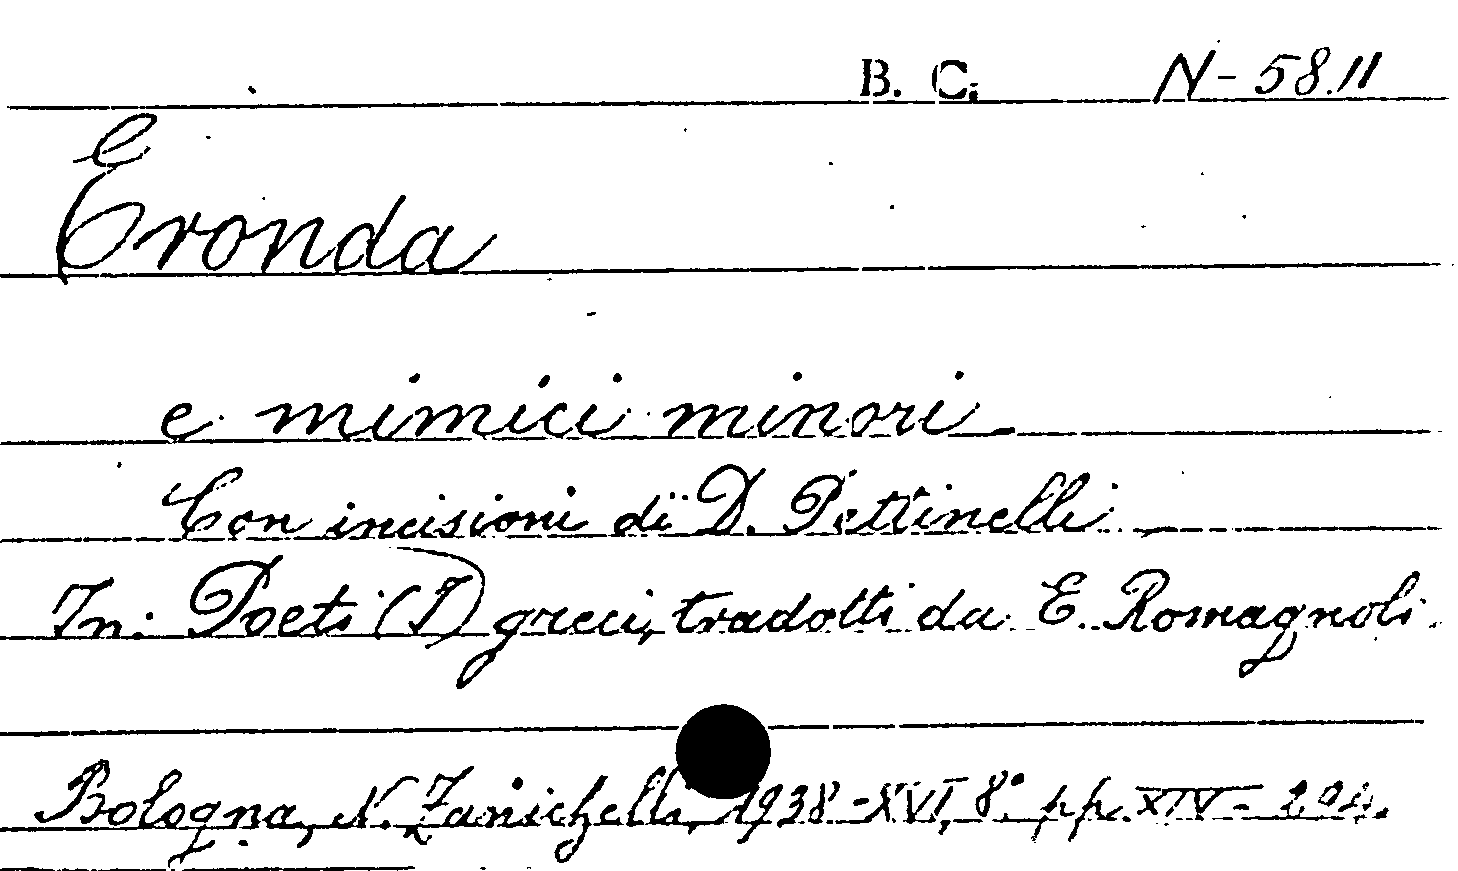 B. C. N-58.11
Eronda
e mimici minori.
Con incisioni di D. Pettinelli.
In: Poeti (I) greci, tradotti da E. Romagnoli.
Bologna, N. Zanichelli, 1938-XVI, 8° pp. XIV-204.